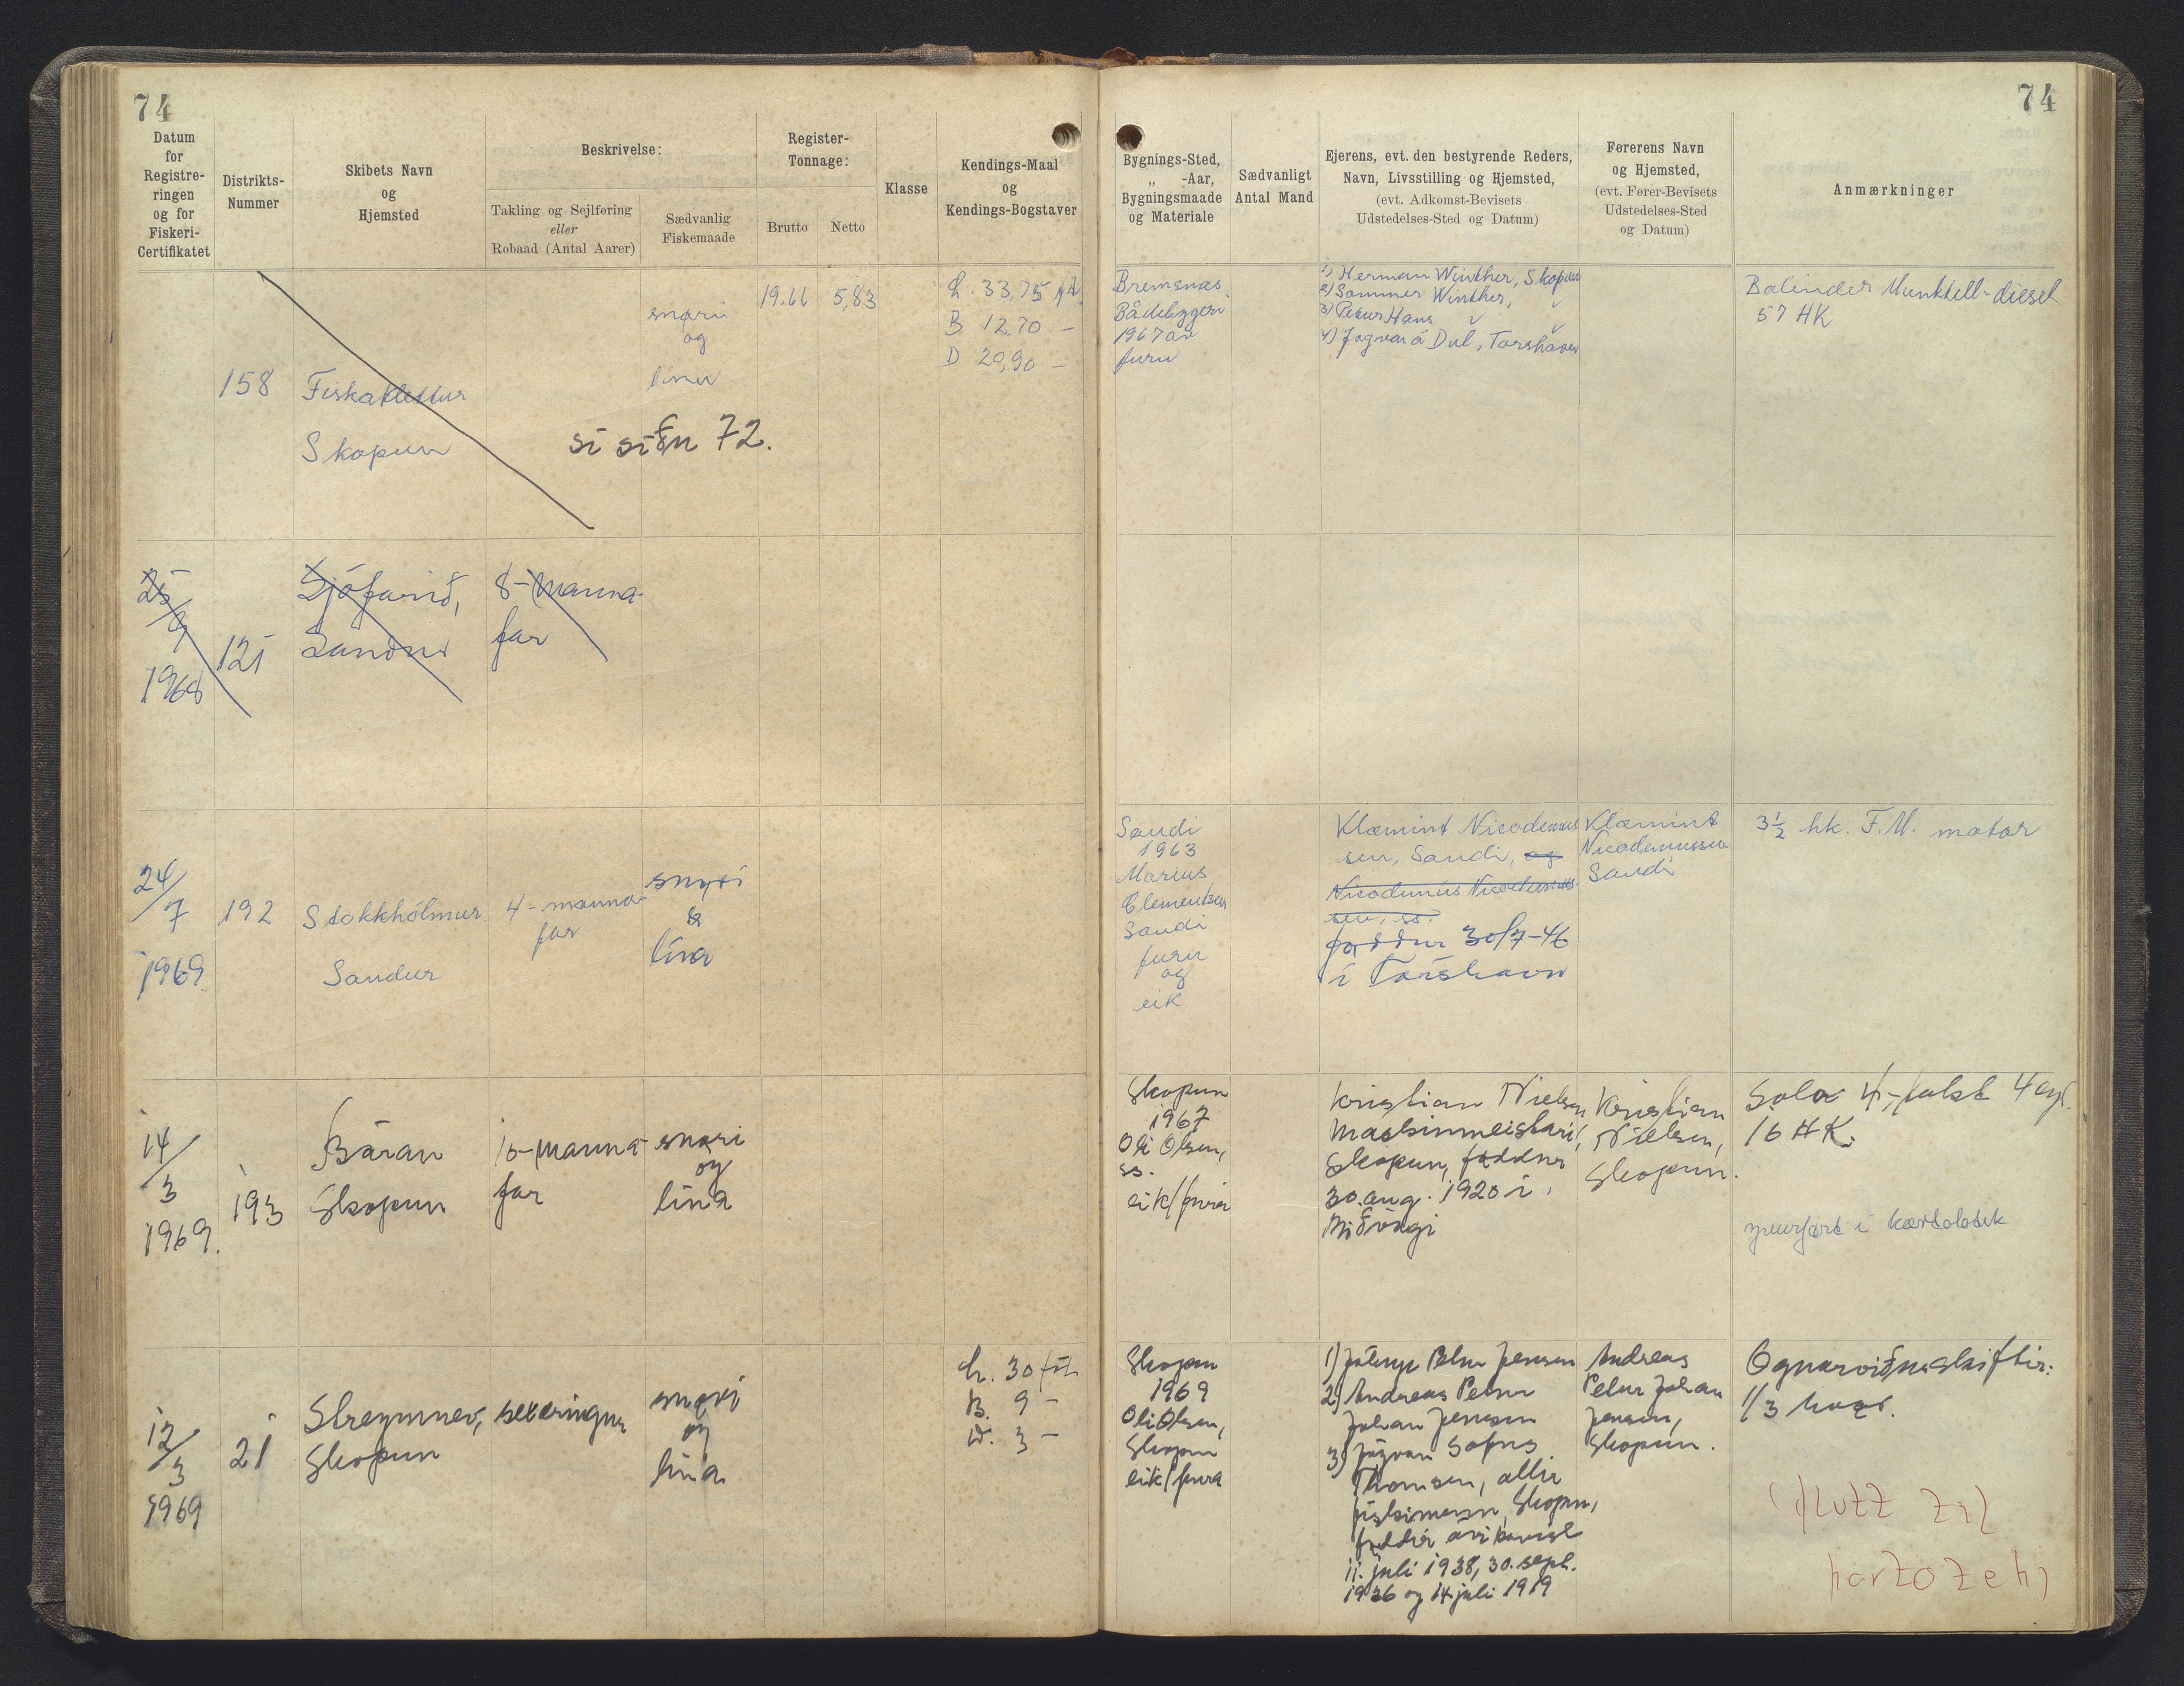 74
74
Datum
for
Registre-
ringen
og for
Fiskeri-
Certifikatet
Distrikts-
Nummer
Skibets Navn
og
Hjemsted
Beskrivelse:
Takling og Sejlføring
eller
Robaad (Antal Aarer)
Sædvanlig
Fiskemaade
Register-
Tonnage:
Brutto
Netto
Klasse
Kendings-Maal
og
Kendings-Bogstaver
Bygnings-Sted,
„ -Aar,
Bygningsmaade
og Materiale
Sædvanligt
Antal Mand
Ejerens, evt. den bestyrende Reders,
Navn, Livsstilling og Hjemsted,
(evt. Adkomst-Bevisets
Udstedelses-Sted og Datum)
Førerens Navn
og Hjemsted,
(evt. Fører-Bevisets
Udstedelses-Sted
og Datum)
Anmærkninger
158
Fiskaklettur
Skopun
snøri
og
línu
sí síðu 72.
19.66
5,83
L. 33,75 ft.
B 12,70 -
D 20,90 -
Bremsnes
Båtbyggeri
1967 av
furu
1) Herman Winther, Skopun
2) Sommer Winther, "
3) Petur Hans " "
4) Jógvan á Dul, Torshavn
Bolinder Munktell-diesel
57 HK
25/9
1968
121
Sjófarið,
Sandur
8-manna-
far
24/7
1969
192
Stokkhólmur
Sandur
4-manna-
far
snøri
&
lína
Sandi
1963
Marius
Clementsen
Sandi
furu
og
eik
Klæmint Nicodemus-
sen, Sandi, og
Nicodemus Nicodemus-
sen, ss.
føddur 30/7-46
í Tórshavn
Klæmint
Nicodemussen
Sandi
3½ hk. F.M. motor
14/3
1969.
193
Báran
Skopun
10-manna-
far
snøri
og
lína
Skopun
1967
Oli Olsen,
ss.
eik/fura
Kristian Nielsen
maskinmeistari,
Skopun, føddur
30. aug. 1920 í
Miðvági
Kristian
Nielsen,
Skopun.
Solo 4-takt 4 cyl.
16 HK.
yvurført í kartotek
12/3
1969
21
Streymnes,
Skopun
seksæringur
snøri
og
lína
L. 30 fót
B. 9 -
D. 3 -
Skopun
1969
Oli Olsen,
Skopun
eik/fura
1) Petur Jensen
2) Andreas Petur
Johan Jensen
3) Jógvan Sofus
Thomsen, allir
fiskimenn, Skopun,
føddir ávikavist
11. juli 1938, 30. sept.
1936 og 14. juli 1919
Andreas
Petur Johan
Jensen,
Skopun.
Ognarviðurskiftir:
1/3 hvør.